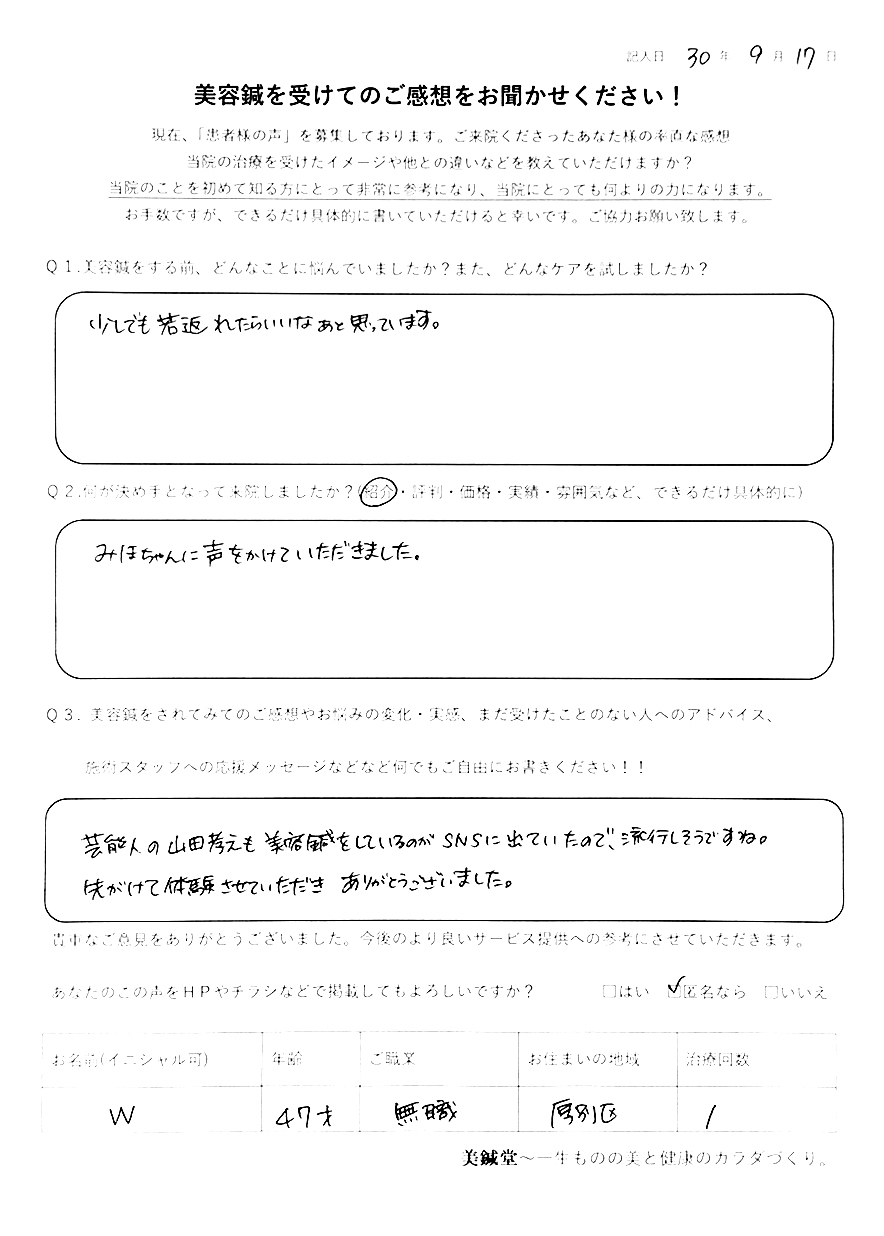 記入日 30年 9月 17日
美容鍼を受けてのご感想をお聞かせください！
現在、「患者様の声」を募集しております。ご来院くださったあなた様の率直な感想
当院の治療を受けたイメージや他との違いなどを教えていただけますか？
当院のことを初めて知る方にとって非常に参考になり、当院にとっても何よりの力になります。
お手数ですが、できるだけ具体的に書いていただけると幸いです。ご協力お願い致します。
Q1.美容鍼をする前、どんなことに悩んでいましたか？また、どんなケアを試しましたか？
少しでも若返れたらいいなぁと思っています。
Q2.何が決め手となって来院しましたか？(紹介・評判・価格・実績・雰囲気など、できるだけ具体的に)
みほちゃんに声をかけていただきました。
Q3. 美容鍼をされてみてのご感想やお悩みの変化・実感、まだ受けたことのない人へのアドバイス、
施術スタッフへの応援メッセージなどなど何でもご自由にお書きください！！
芸能人の山田孝えも美容鍼をしているのがSNSに出ていたので、流行しそうですね。
先がけて体験させていただき ありがとうございました。
貴重なご意見をありがとうございました。今後のより良いサービス提供への参考にさせていただきます。
あなたのこの声をＨＰやチラシなどで掲載してもよろしいですか？ □はい ☑匿名なら □いいえ
お名前(イニシャル可) 年齢 ご職業 お住まいの地域 治療回数
W 47才 無職 厚別区 1
美鍼堂～一生ものの美と健康のカラダづくり。